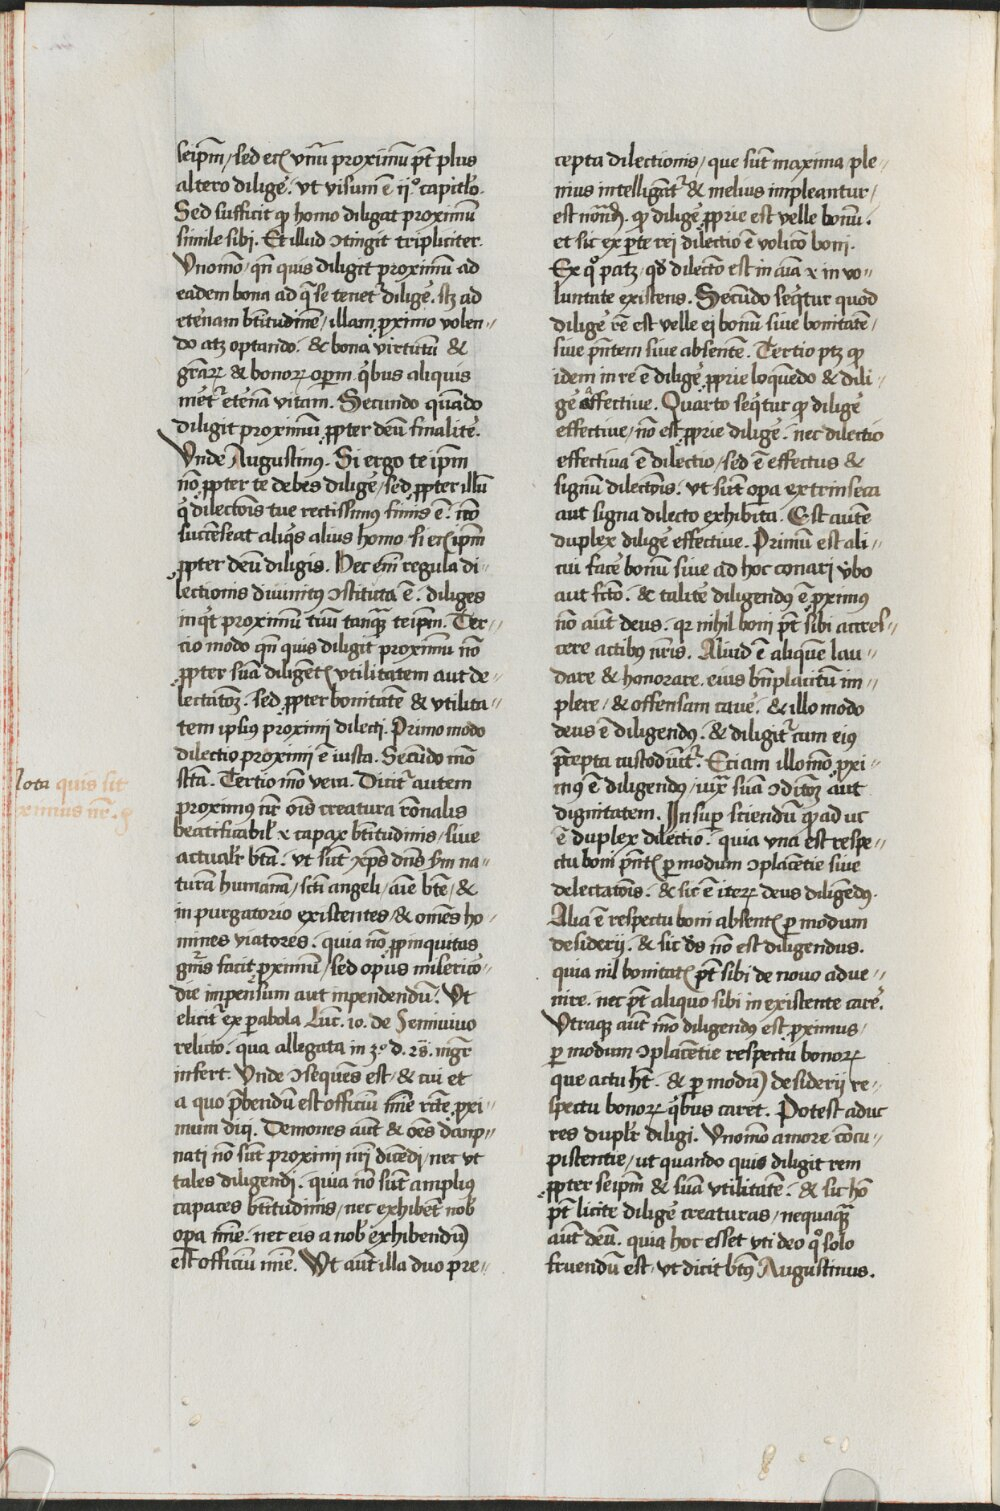 seip̄m / sed ecꝭ vnū proximū pt̄ plus
altero diligẽ. vt visum ē ijº capitl̕o.
Sed sufficit ꝙ homo diligat proximū
simile sibi. Et illud ꝯtingit tripliciter.
Vnomō / qn̄ quis diligit proximū ad
eadem bona ad q̄ se tenet᷑ diligẽ. scꝫ ad
eternam bt̄itudinē / illam ꝓximo volen〃
do atqꝫ optando. & bona virtutū &
grãꝝ & bonoꝝ oꝑm. qͥbus aliquis
met᷑ et̃nã vitam. Secundo quãdo
diligit proximū ꝓpter deū finalitẽ.
Vnde Augustinꝰ. Si ergo te ip̄m
nō ꝓpter te debes diligẽ / sed ꝓpter illū
qͥ dilectōis tue rectissimꝰ finis ē. nō
succēseat aliqͥs alius homo. si ecꝭ ip̄m
ꝓpter deū diligis. Hec em̄ regula di〃
lectionis diuinitꝰ ꝯstituta ē. diliges
inqͥt proximū tuū tanqꝫ̄ teip̄m. Ter〃
cio modo qn̄ quis diligit proximū nō
ꝓpter suã diligētꝭ vtilitatem aut de〃
lectatōꝫ. sed ꝓpter bonitatē & vtilita〃
tem ipsiꝰ proximi dilecti. Primo modo
dilectio proximi ē iusta. Secūdo mō
sc̄ta. Tertio mō vera. Dicit᷑ autem
proximꝰ nr̄ ois̄ creatura rōnalis
beatificabil̕ & capax bt̄itudinis / siue
actualr̕ btã. vt sūt xp̄s dn̄s ẜm na〃
turã humanã / sc̄ti angeli / aīe bt̄e / &
in purgatorio existentes / & oms̄ ho〃
mines viatores. quia nō ꝓpinquitas
gn̄ris facit ꝓximū / sed opus miserico〃
die impensum aut inpendendū. Vt
elicit᷑ ex ꝑabola Luc̄. 10. de Semiuiuo
relicto. qua allegata in 3º d. 28. mgr̄
infert. Vnde ꝯsequēs est / & cui et
a quo p̄bendū est officiū mīe rc̄te ꝓxi〃
mum dici. Demones aūt & oēs dānp〃
nati nō sūt proximi nr̄i dicēdi / nec vt
tales diligendi. quia nō sūt ampliꝰ
capaces bt̄itudinis / nec exhibēt nob̕
oꝑa mīe. nec eis a nob̕ exhibendū
est officiū mīe. Vt aūt illa duo pre〃
Nota quis sit
proximus nr̄.
cepta dilectionis / que sūt maxima ple〃
nius intelligāt᷑ & melius impleantur /
est notãdū. ꝙ diligẽ ꝓprie est velle bonū.
et sic ex ꝑte rei dilectio ē volicō boni.
Ex qº patꝫ, qd̕ dilectō est in aīa & in vo〃
luntate existens. Secūdo seqͥtur quod
diligẽ rē est velle ei bonū siue bonitatē /
siue pn̄tem siue absentē. Tertio ptꝫ ꝙ
idem in re ē diligẽ ꝓprie loquēdo & dili〃
gẽ affectiue. Quarto seqͥtur ꝙ diligẽ
effectiue / nō est ꝓprie diligẽ. nec dilectio
effectiua ē dilectio / sed ē effectus &
signū dilectōis. vt sūt oꝑa extrinseca
aut signa dilecto exhibita. Est autē
duplex diligẽ effectiue. Primū est ali〃
cui facẽ bonū siue ad hoc conari v̕bo
aut fcō. & talitẽ diligendꝰ ē ꝓximꝰ
nō aūt deus. qr̕ nihil boni pt̄ sibi accres〃
cere actibꝰ nr̄is. Aliud ē aliquē lau〃
dare & honorare. eius bn̄placitū im〃
plere / & offensam cauẽ. & illo modo
deus ē diligendꝰ. & diligit᷑ cum eiꝰ
p̄cepta custodiūt᷑. Etiam illo mō ꝓxi〃
mꝰ ē diligendꝰ / iuxͣ suã ꝯditōꝫ aut
dignitatem. Insuꝑ sciendū ꝙ ad uc
ē duplex dilectio. quia vna est respe〃
ctu boni pn̄tꝭ ꝑ modum ꝯplacētie siue
delectatōis. & sic ē iteꝝ deus diligēdꝰ.
Alia ē respectu boni absentꝭ ꝑ modum
desiderij. & sic ds̄ nō est diligendus.
quia nil bonitatꝭ pt̄ sibi de nouo adue〃
nire. nec pt̄ aliquo sibi in existente carẽ.
Vtraqꝫ aūt mō diligendꝰ est ꝓximus /
ꝑ modum ꝯplacētie respectu bonoꝝ
que actu hn̄t. & ꝑ modū desiderij re〃
spectu bonoꝝ qͥbus caret. Potest aduc
res duplr̕ diligi. Vnomō amore cōcu〃
piscentie / ut quando quis diligit rem
ꝓpter seip̄m & suã vtilitatē. & sic hō
pt̄ licite diligẽ creaturas / nequaqꝫ̄
aūt deū. quia hoc esset vti deo qº solo
fruendū est, vt dicit btꝰ Augustinus.